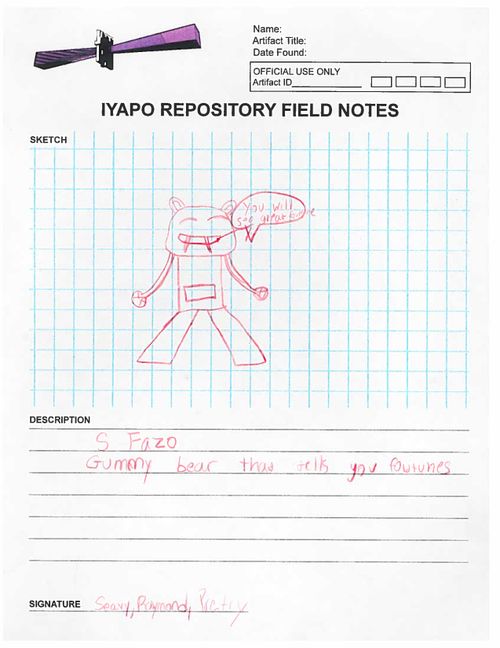 Name:
Artifact Title:
Date Found:
OFFICIAL USE ONLY
Artifact ID
IYAPO REPOSITORY FIELD NOTES
SKETCH
you will
see great
DESCRIPTION
S Fazo
Gummy bear that tells you fowtunes
SIGNATURE Raymond,